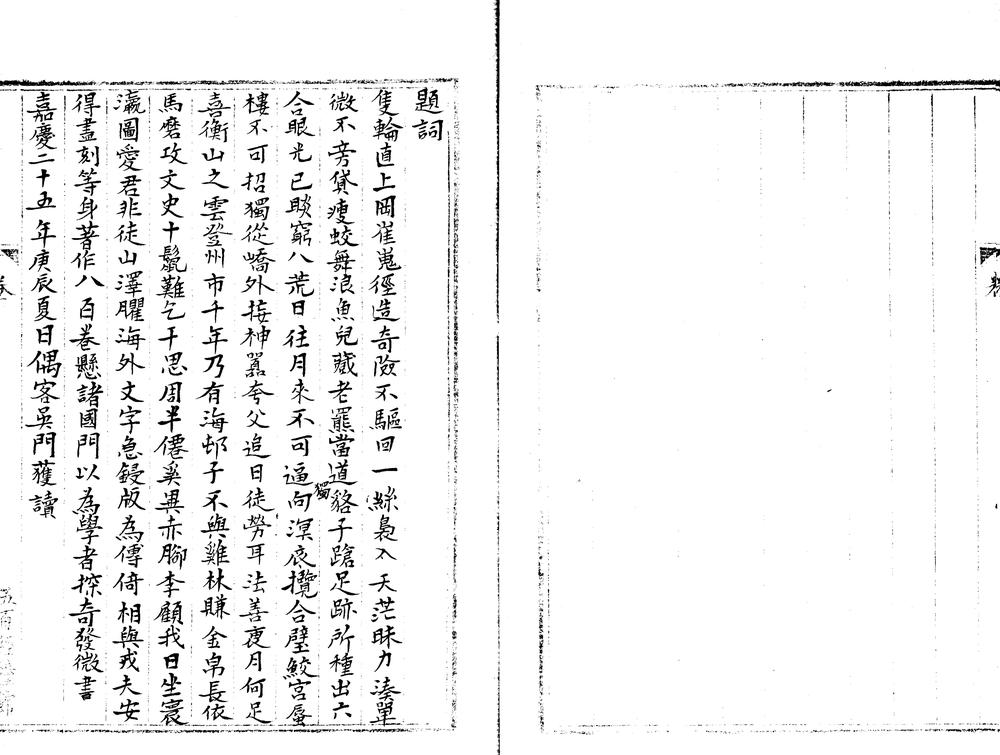 題詞
隻輪直上岡崔嵬徑造奇險不驅回一絲裊入天茫昧力湊單
微不旁貸瘦蛟舞浪魚兒藏老羆當道貉子蹌足跡所種出六
合眼光已睒窮八荒日往月來不可逼向獨溟底攬合璧鮫宮蜃
樓不可招獨從嶠外接神囂夸父追日徒勞耳法善夜月何足
喜衡山之雲登州市千年乃有海邨子不與雞林賺金帛長依
馬磨攻文史十鬣難乞干思周半僊奚異赤腳李顧我日坐寰
瀛圖愛君非徒山澤臞海外文字急鋟版為傳倚相與戎夫安
得盡刻等身著作八百卷懸諸國門以為學者探奇發微書
嘉慶二十五年庚辰夏日偶客吳門獲讀